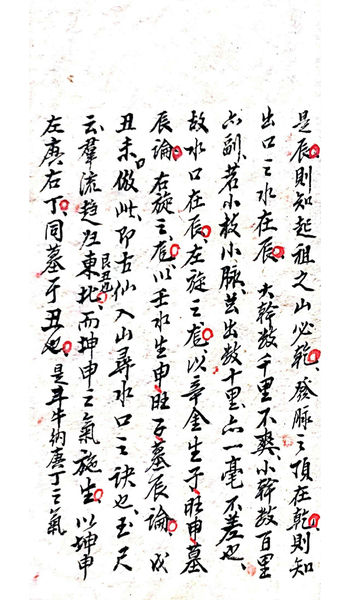 是辰則知起祖之山必乾發脉之頂在乾則知
出口之水在辰大幹数千里不爽小幹数百里
六副若小枝小脉芸出数十里六一毫不差也
故水口在辰左旋之庀以辛金生子旺申墓
辰論右旋之庀以壬水生申旺子墓辰論戍
丑未倣此即古仙入山尋水口之訣也玉尺
云羣流趋归東北艮丑也而坤申之氣施生以坤申
左庚右丁同墓于丑也是斗牛納庚丁之氣